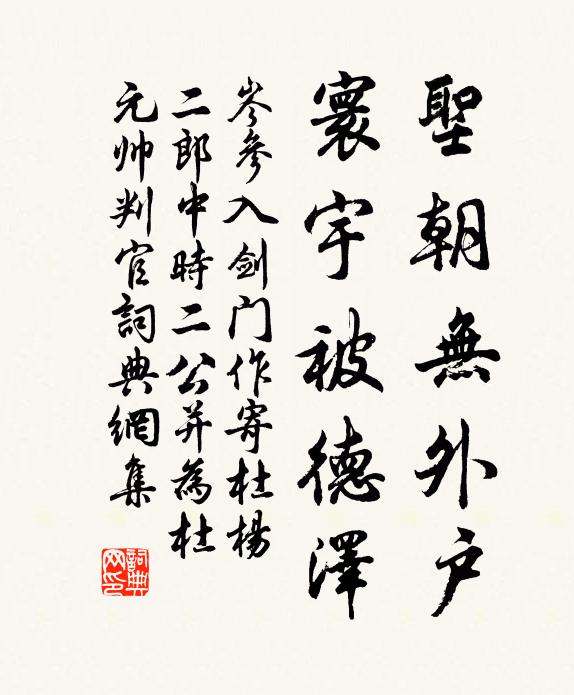 聖朝無外戶
寰宇被德澤
岑參入劍门作寄杜楊
二郎中時二公并為杜
元帅判官詞典網集
詞典网印